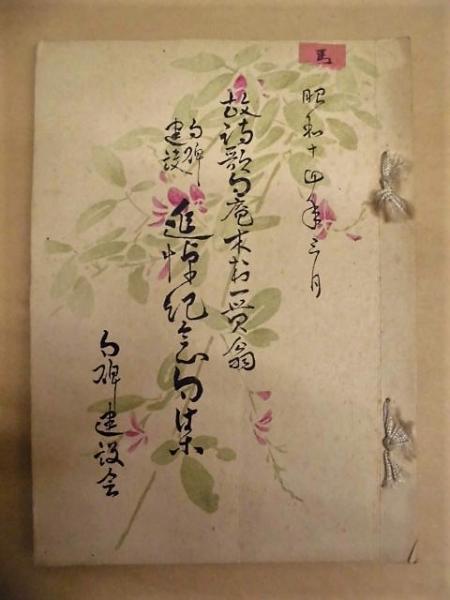 馬
昭和十四年三月
故詩歌句庵木村一貫翁
句碑
建設
追悼紀念句集
句碑建設会